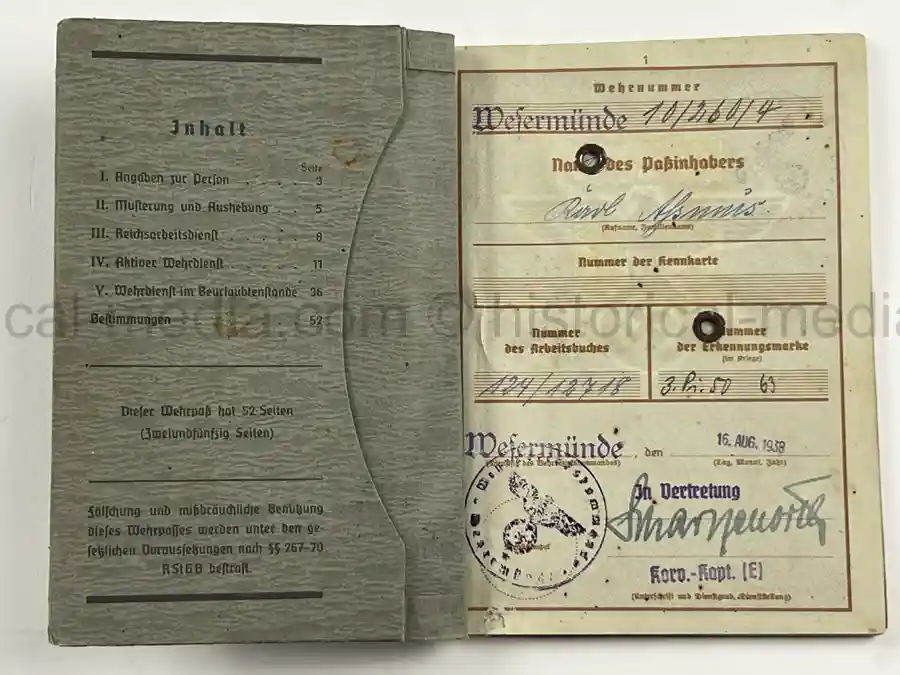 Inhalt
Seite
I. Angaben zur Person . . . . 3
II. Musterung und Aushebung . . . 5
III. Reichsarbeitsdienst . . . . . . 8
IV. Aktiver Wehrdienst . . . . . . 11
V. Wehrdienst im Beurlaubtenstande 36
Bestimmungen . . . . . . . . 52
Dieser Wehrpaß hat 52 Seiten
(Zweiundfünfzig Seiten)
Fälschung und mißbräuchliche Benutzung
dieses Wehrpasses werden unter den ge-
setzlichen Voraussetzungen nach §§ 267-70
RStGB bestraft.
1
Wehrnummer
Wesermünde 10/260/4
Name des Paßinhabers
Karl Aßmus
(Rufname, Familienname)
Nummer der Kennkarte
Nummer
des Arbeitsbuches
124/12718
Nummer
der Erkennungsmarke
(im Kriege)
63
Wesermünde, den 16. AUG. 1938
(Tag, Monat, Jahr)
In Vertretung
Korv.-Kapt. (E)
(Unterschrift und Dienstgrad, Dienststellung)
cal-media.com © historical-media